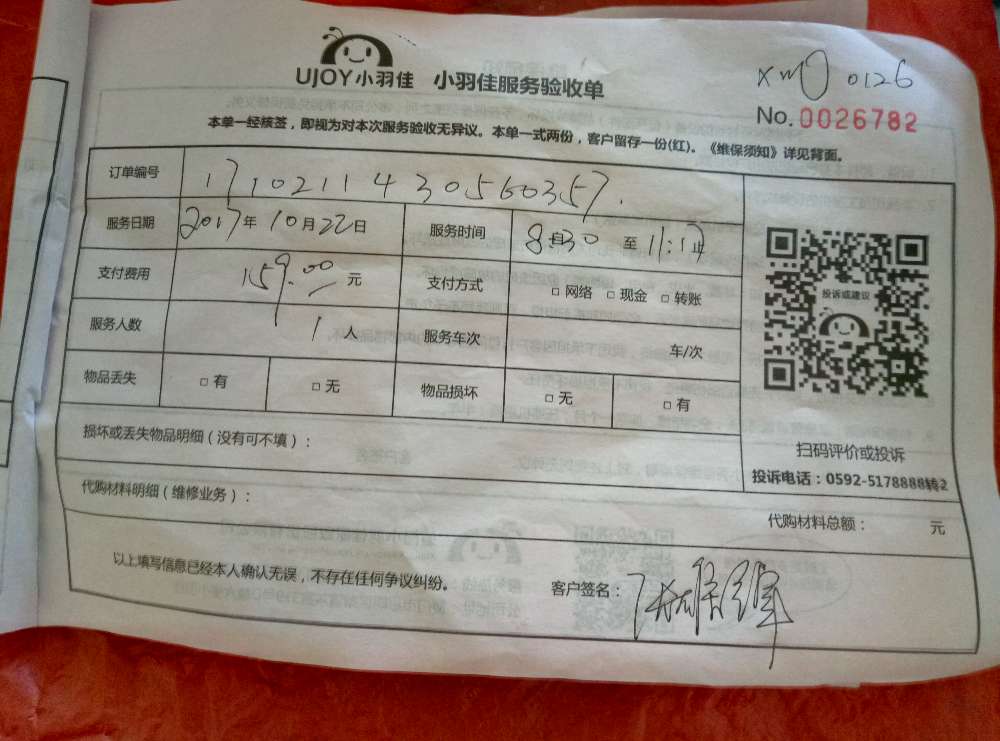 UJOY小羽佳 小羽佳服务验收单
0126
No. 0026782
本单一经核签，即视为对本次服务验收无异议。本单一式两份，客户留存一份(红)。《维保须知》详见背面。
订单编号 1710211430560357.
服务日期 2017年10月22日 服务时间 8:30 至 11:17止
支付费用 159.00 元 支付方式 □ 网络 □ 现金 □ 转账
服务人数 1 人 服务车次 车/次
物品丢失 □ 有 □ 无 物品损坏 □ 无 □ 有
投诉或建议
损坏或丢失物品明细（没有可不填）：
扫码评价或投诉
投诉电话：0592-5178888转2
代购材料明细（维修业务）：
代购材料总额： 元
以上填写信息已经本人确认无误，不存在任何争议纠纷。 客户签名：